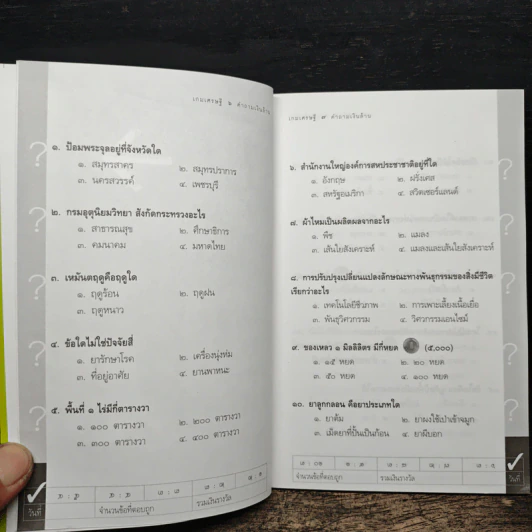 เกมเศรษฐี ๖ คำถามเงินล้าน
๑. ป้อมพระจุลอยู่ที่จังหวัดใด
๑. สมุทรสาคร ๒. สมุทรปราการ
๓. นครสวรรค์ ๔. เพชรบุรี
๒. กรมอุตุนิยมวิทยา สังกัดกระทรวงอะไร
๑. สาธารณสุข ๒. ศึกษาธิการ
๓. คมนาคม ๔. มหาดไทย
๓. เหมันตฤดูคือฤดูใด
๑. ฤดูร้อน ๒. ฤดูฝน
๓. ฤดูหนาว
๔. ข้อใดไม่ใช่ปัจจัยสี่
๑. ยารักษาโรค ๒. เครื่องนุ่งห่ม
๓. ที่อยู่อาศัย ๔. ยานพาหนะ
๕. พื้นที่ ๑ ไร่มีกี่ตารางวา
๑. ๑๐๐ ตารางวา ๒. ๒๐๐ ตารางวา
๓. ๓๐๐ ตารางวา ๔. ๔๐๐ ตารางวา
วันที่ จำนวนข้อที่ตอบถูก รวมเงินรางวัล
เกมเศรษฐี ๗ คำถามเงินล้าน
๖. สำนักงานใหญ่องค์การสหประชาชาติอยู่ที่ใด
๑. อังกฤษ ๒. ฝรั่งเศส
๓. สหรัฐอเมริกา ๔. สวิตเซอร์แลนด์
๗. ผ้าไหมเป็นผลิตผลจากอะไร
๑. พืช ๒. แมลง
๓. เส้นใยสังเคราะห์ ๔. แมลงและเส้นใยสังเคราะห์
๘. การปรับปรุงเปลี่ยนแปลงลักษณะทางพันธุกรรมของสิ่งมีชีวิต
เรียกว่าอะไร
๑. เทคโนโลยีชีวภาพ ๒. การเพาะเลี้ยงเนื้อเยื่อ
๓. พันธุวิศวกรรม ๔. วิศวกรรมเอนไซม์
๙. ของเหลว ๑ มิลลิลิตร มีกี่หยด (๕,๐๐๐)
๑. ๑๕ หยด ๒. ๒๐ หยด
๓. ๕๐ หยด ๔. ๑๐๐ หยด
๑๐. ยาลูกกลอน คือยาประเภทใด
๑. ยาต้ม ๒. ยาผงใช้เป่าเข้าจมูก
๓. เม็ดยาที่ปั้นเป็นก้อน ๔. ยาฝีบอก
จำนวนข้อที่ตอบถูก รวมเงินรางวัล วันที่